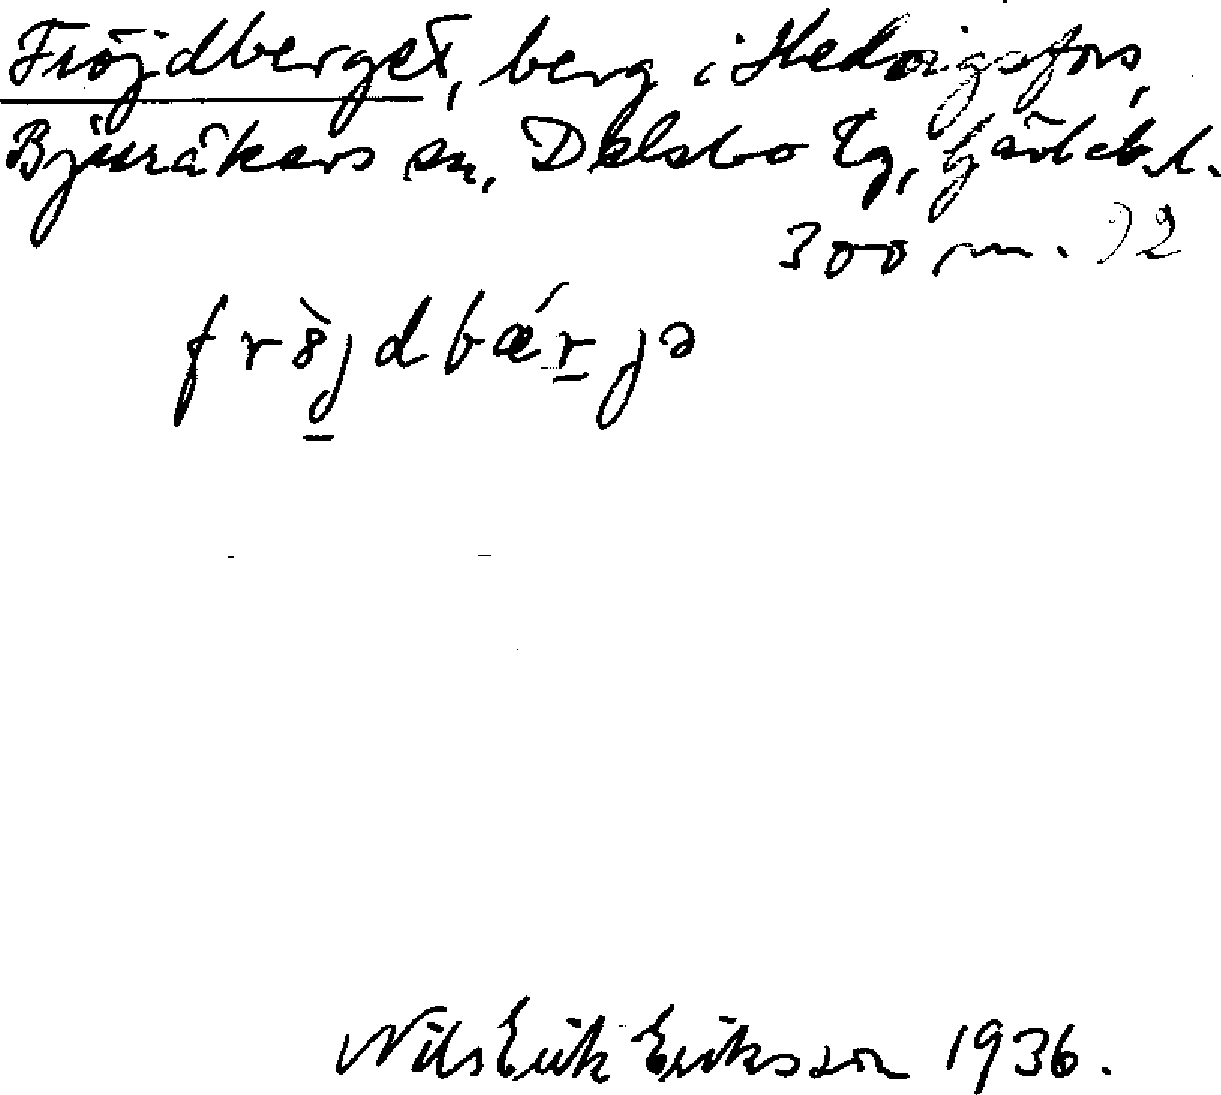 Fröjdberget, berg i Hedvigsfors,
Bjuråkers sn, Delsbo tg, Gävlebg l.
300 m. 92
frŏ̀jdbǽrjə
Nils Erik Eriksson 1936.